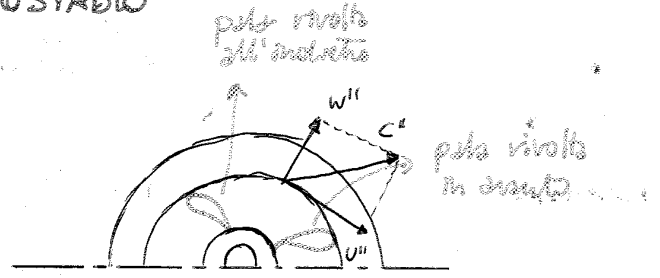 pala rivolta
all'indietro
W"
C"
pala rivolta
in avanti
U"